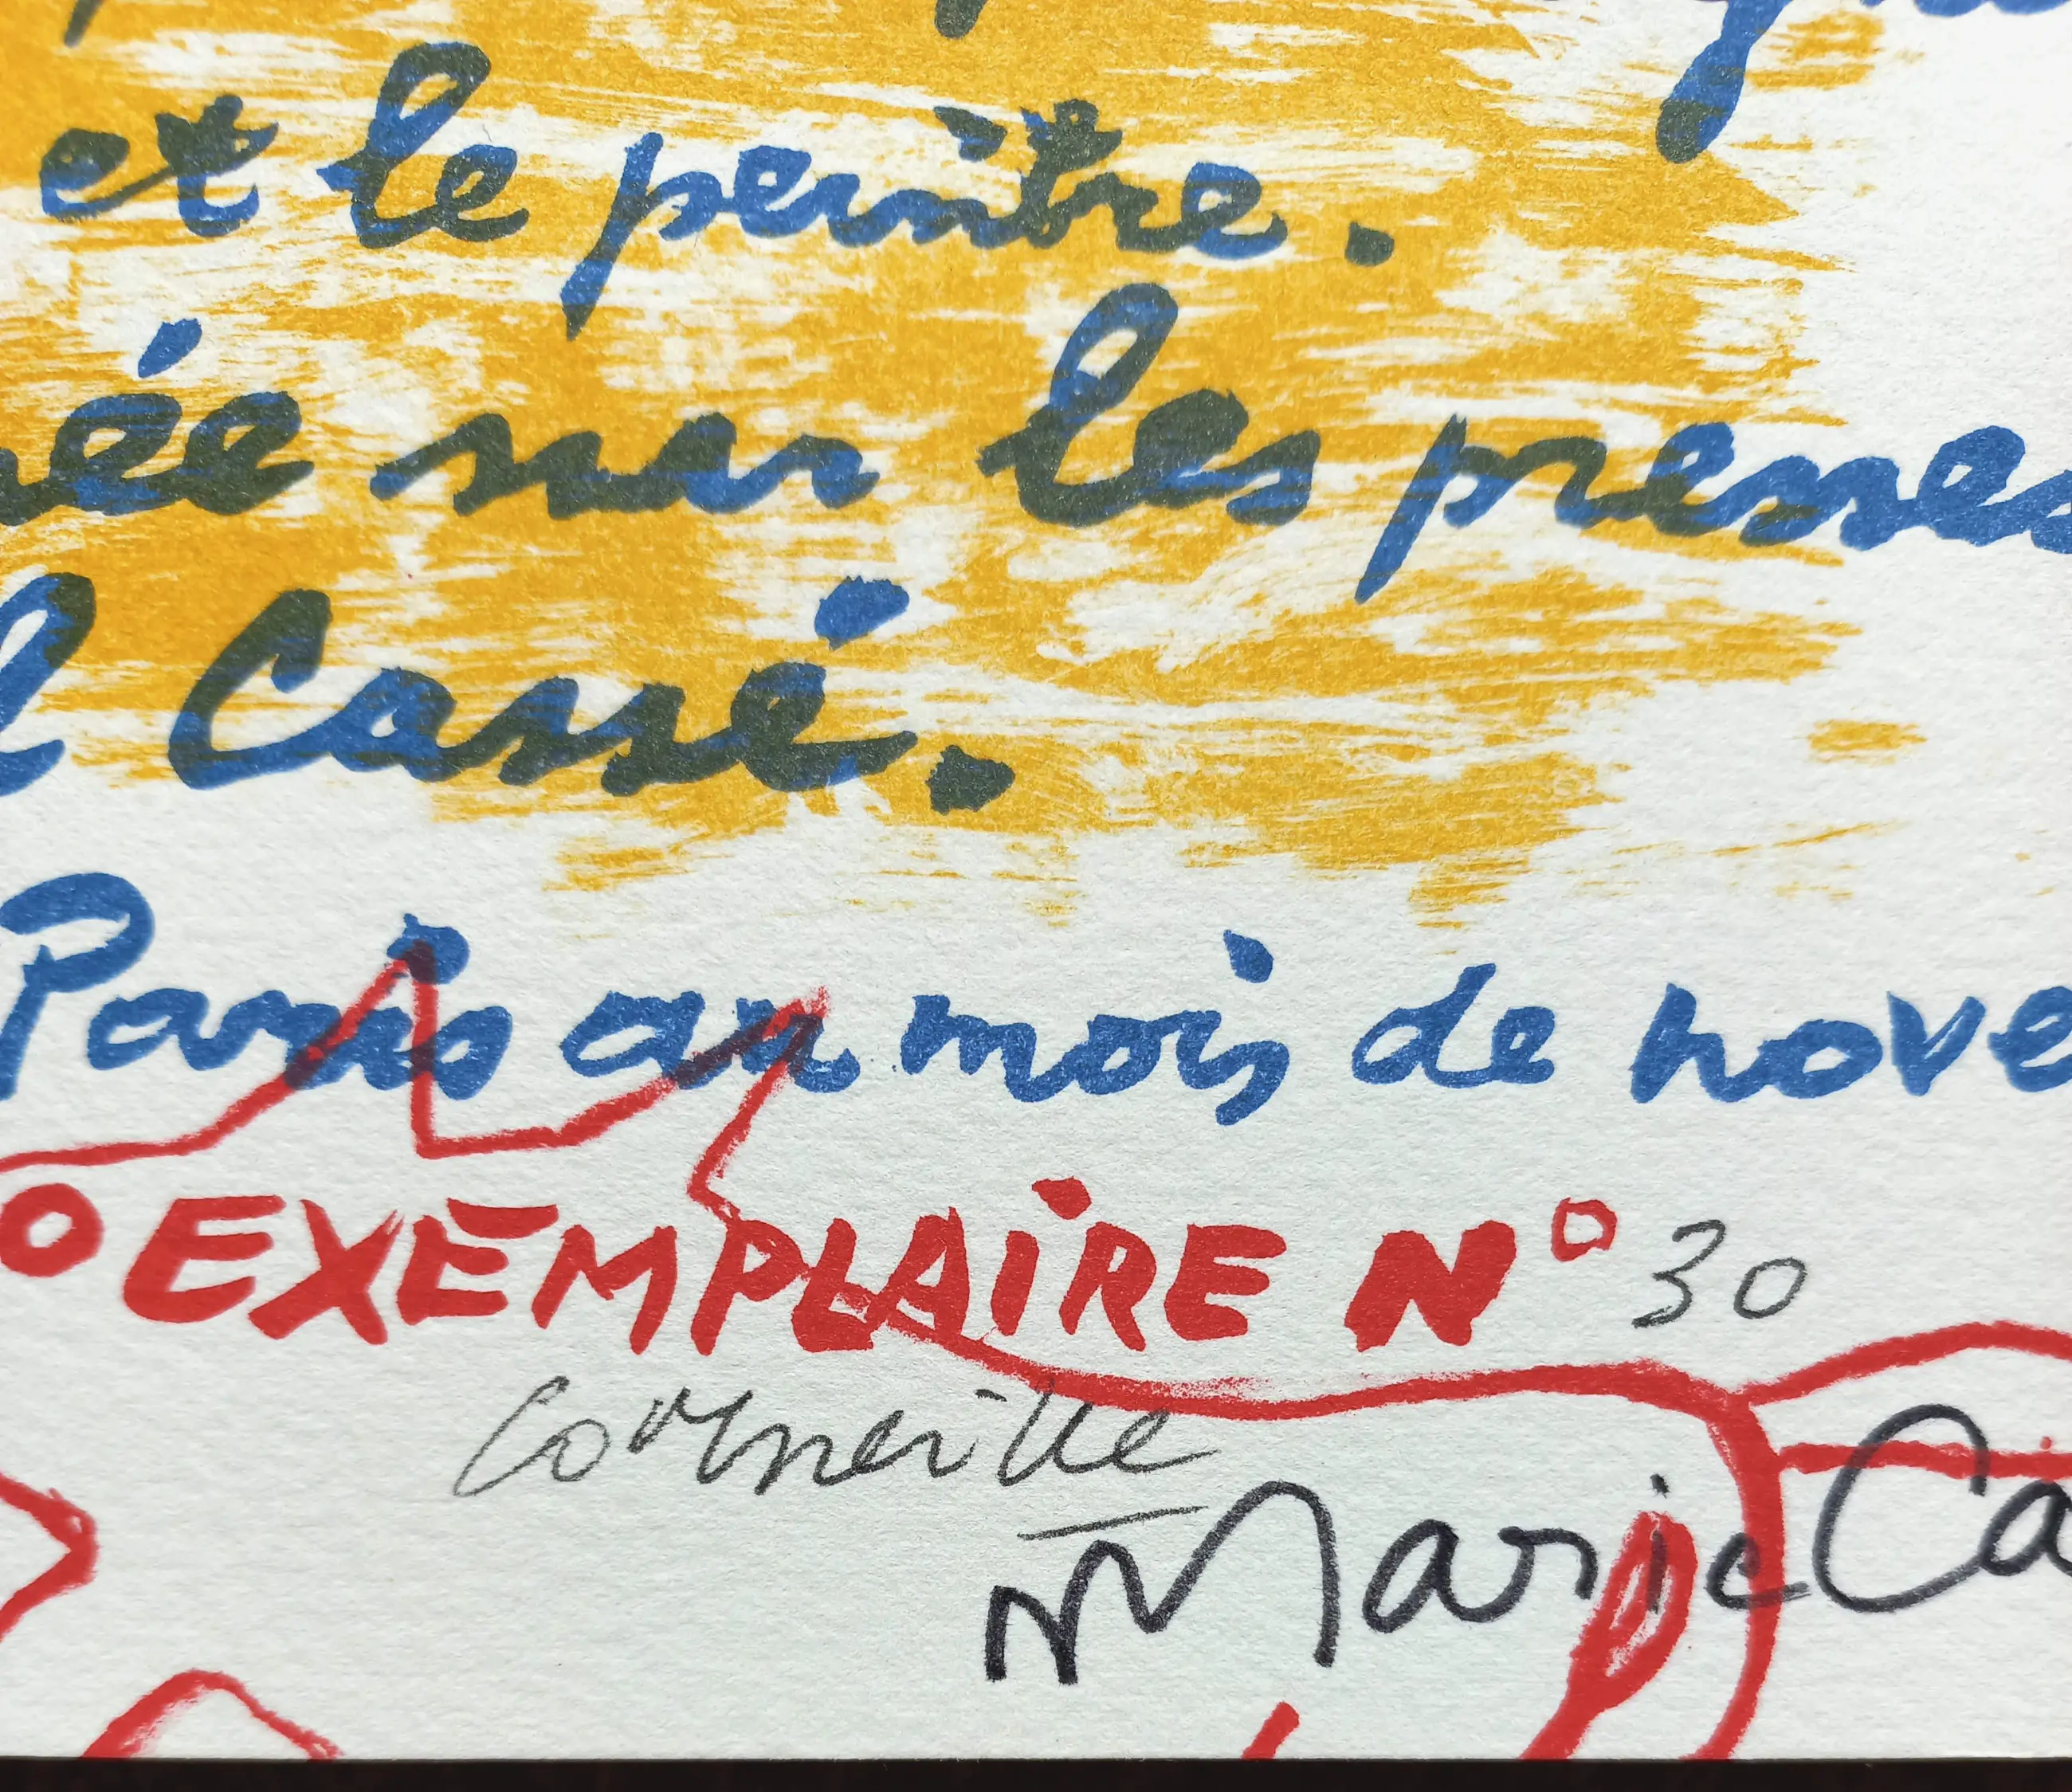 et le peintre.
ée sur les presses
l Cassé.
Paris au mois de nove
EXEMPLAIRE N° 30
Corneille
Marie Ca